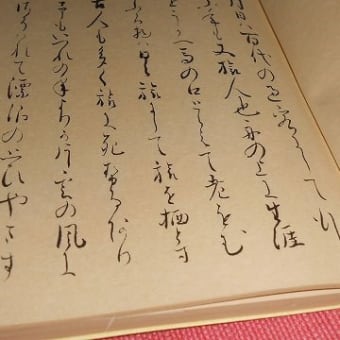 月日は百代の過客にして行
ふ年も又旅人也舟の上に生涯
をうかへ馬の口とらえて老をむ
ふる物は日々旅にして旅を栖とす
古人も多く旅に死せるあり
予もいつれの年よりか片雲の風に
さそはれて漂泊の思ひやます